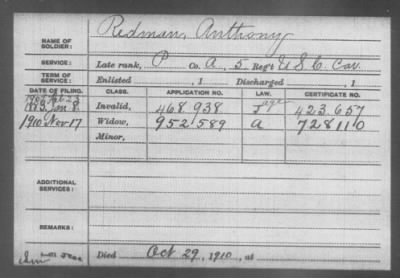 NAME OF SOLDIER: Redman, Anthony
SERVICE: Late rank, P Co. A, 5 Reg't U S C. Cav.
TERM OF SERVICE: Enlisted , 1 Discharged , 1
DATE OF FILING. CLASS. APPLICATION NO. LAW. CERTIFICATE NO.
Jan 8 Invalid, 468 938 423 657
1910 Nov 17 Widow, 952 589 a 728110
Minor,
ADDITIONAL SERVICES:
REMARKS:
Died Oct 29, 1910, at